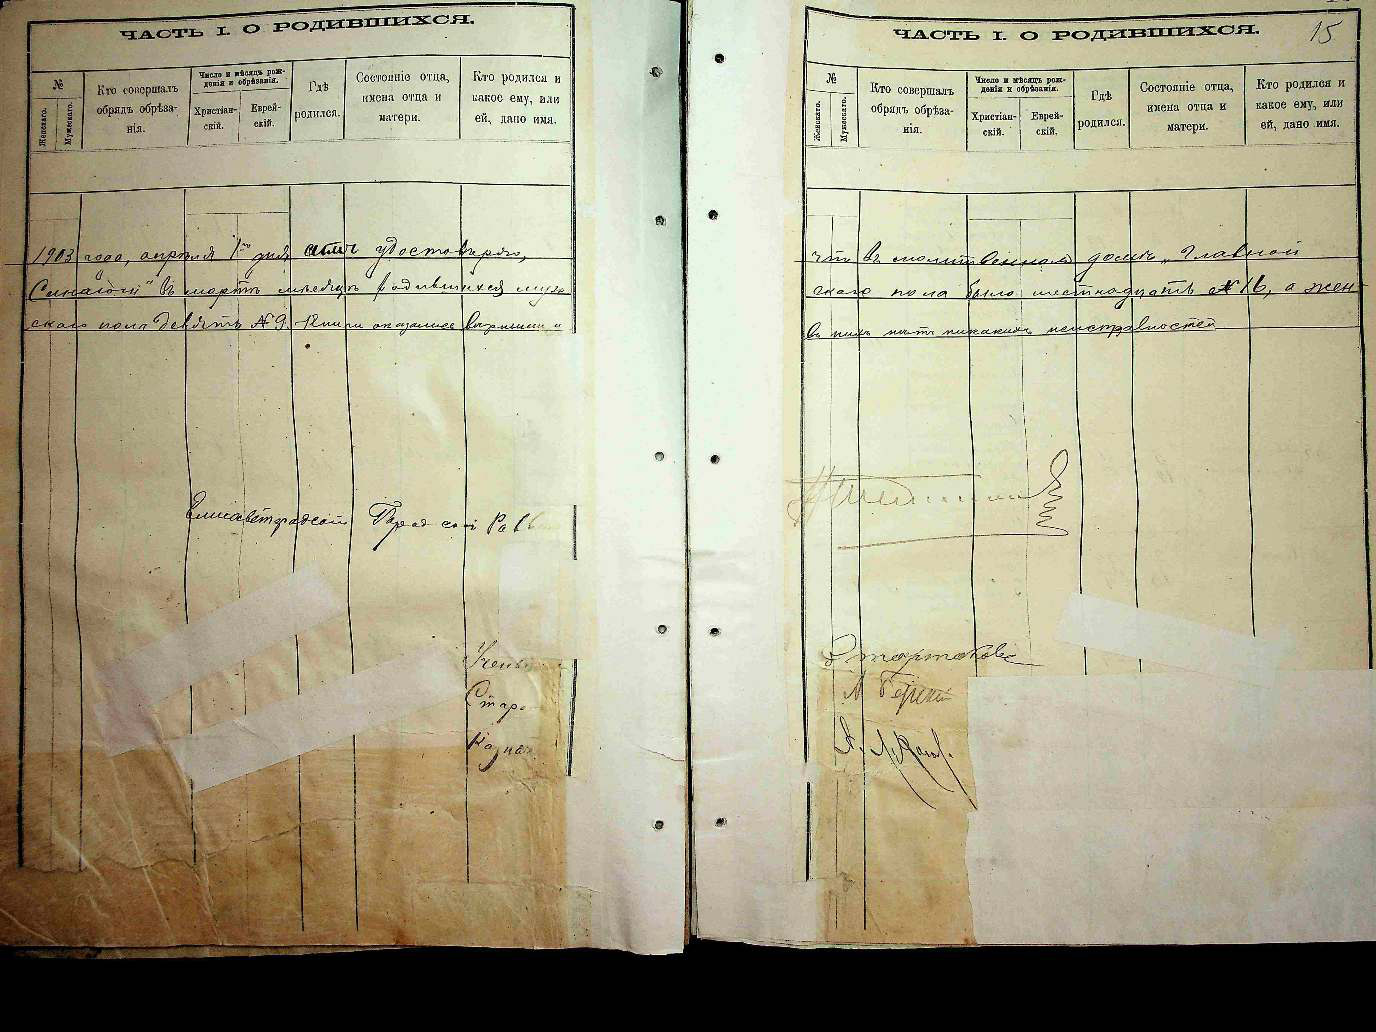 ЧАСТЬ I. О РОДИВШИХСЯ.
№
Женскаго.
Мужескаго.
Кто совершалъ
обрядъ обрѣза-
нія.
Число и мѣсяцъ рож-
денія и обрѣзанія.
Христіан-
скій.
Еврей-
скій.
Гдѣ
родился.
Состояніе отца,
имена отца и
матери.
Кто родился и
какое ему, или
ей, дано имя.
1903 года, апрѣля 1го дня симъ удостовѣряю,
Синагоги" въ мартѣ мѣсяцѣ родившихся муж
скаго пола девять № 9. Книги оказались вѣрными и
Елисаветградскій Городской Равв
Учены
Старо
Казнач
ЧАСТЬ I. О РОДИВШИХСЯ.
15
№
Женскаго.
Мужескаго.
Кто совершалъ
обрядъ обрѣза-
нія.
Число и мѣсяцъ рож-
денія и обрѣзанія.
Христіан-
скій.
Еврей-
скій.
Гдѣ
родился.
Состояніе отца,
имена отца и
матери.
Кто родился и
какое ему, или
ей, дано имя.
что въ молитвенномъ домѣ „Главной
скаго пола было шестнадцать № 16, а жен-
въ нихъ нѣтъ никакихъ неисправностей